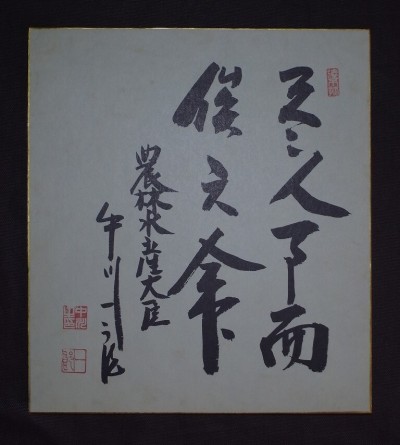 尽人事而
俟天命
農林水産大臣
中川一郎